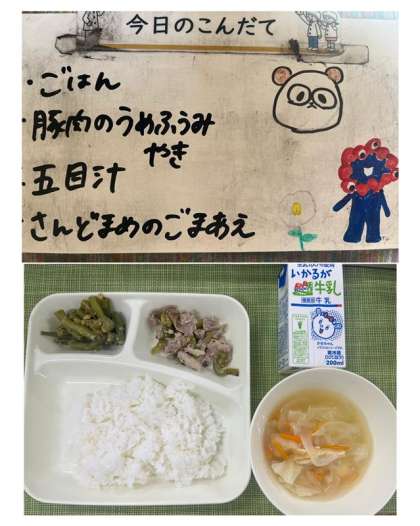 今日のこんだて
・ごはん
・豚肉のうめふうみ
やき
・五目汁
・さんどまめのごまあえ
いかるが
牛乳
牛乳
200ml